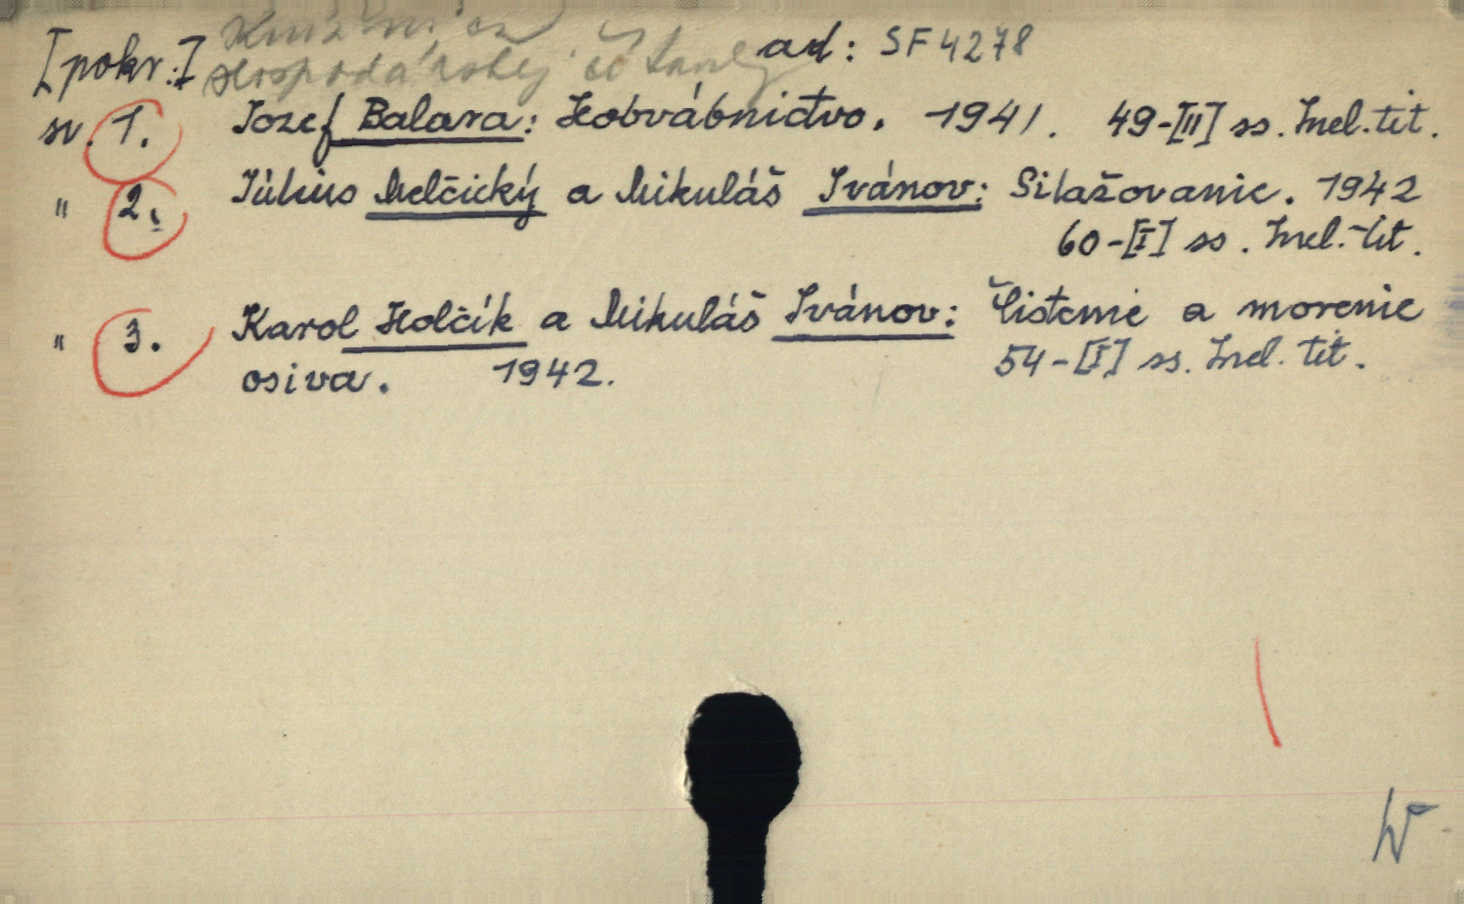 Knižnica
[pokr.:] Hospodárskej čítanky ad: SF 4278
sv. 1. Jozef Balara: Hodvábnictvo. 1941. 49-[III] ss. Inel. tit.
" 2. Július Melčický a Mikuláš Ivánov: Silažovanie. 1942
60-[I] ss. Inel. tit.
" 3. Karol Holčík a Mikuláš Ivánov: Čistenie a morenie
osiva. 1942. 54-[I] ss. Inel. tit.